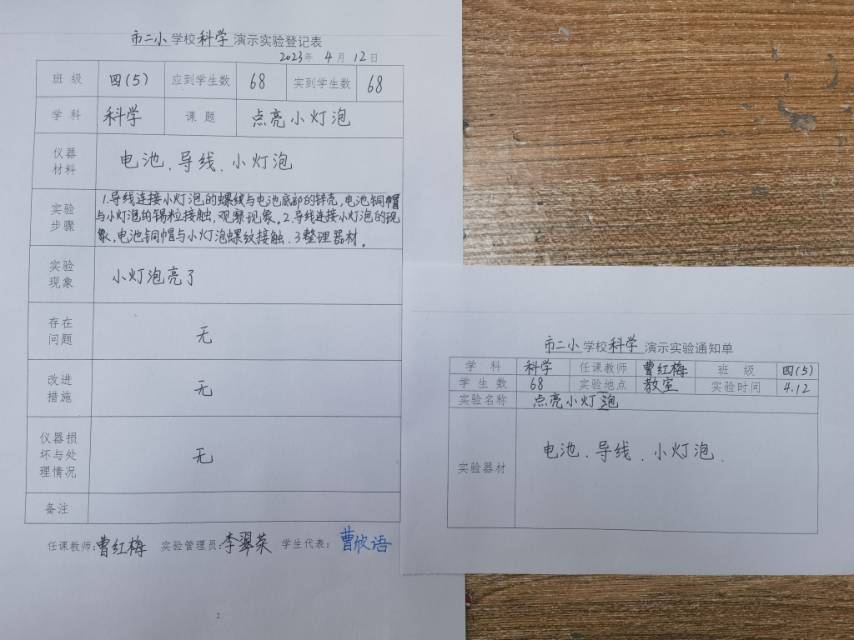 市二小学校科学演示实验登记表
2023年 4月 12日
班 级 四(5) 应到学生数 68 实到学生数 68
学 科 科学 课 题 点亮小灯泡
仪器
材料 电池、导线、小灯泡
实验
步骤
1.导线连接小灯泡的螺纹与电池底部的锌壳,电池铜帽
与小灯泡的锡粒接触,观察现象。2.导线连接小灯泡的现
象,电池铜帽与小灯泡螺纹接触.3整理器材。
实验
现象 小灯泡亮了
存在
问题 无
改进
措施 无
仪器损
坏与处
理情况 无
备注
任课教师:曹红梅 实验管理员:李翠荣 学生代表:曹欣语
2
市二小学校科学演示实验通知单
学 科 科学 任课教师 曹红梅 班 级 四(5)
学 生 数 68 实验地点 教室 实验时间 4.12
实验名称 点亮小灯泡
实验器材 电池、导线、小灯泡.